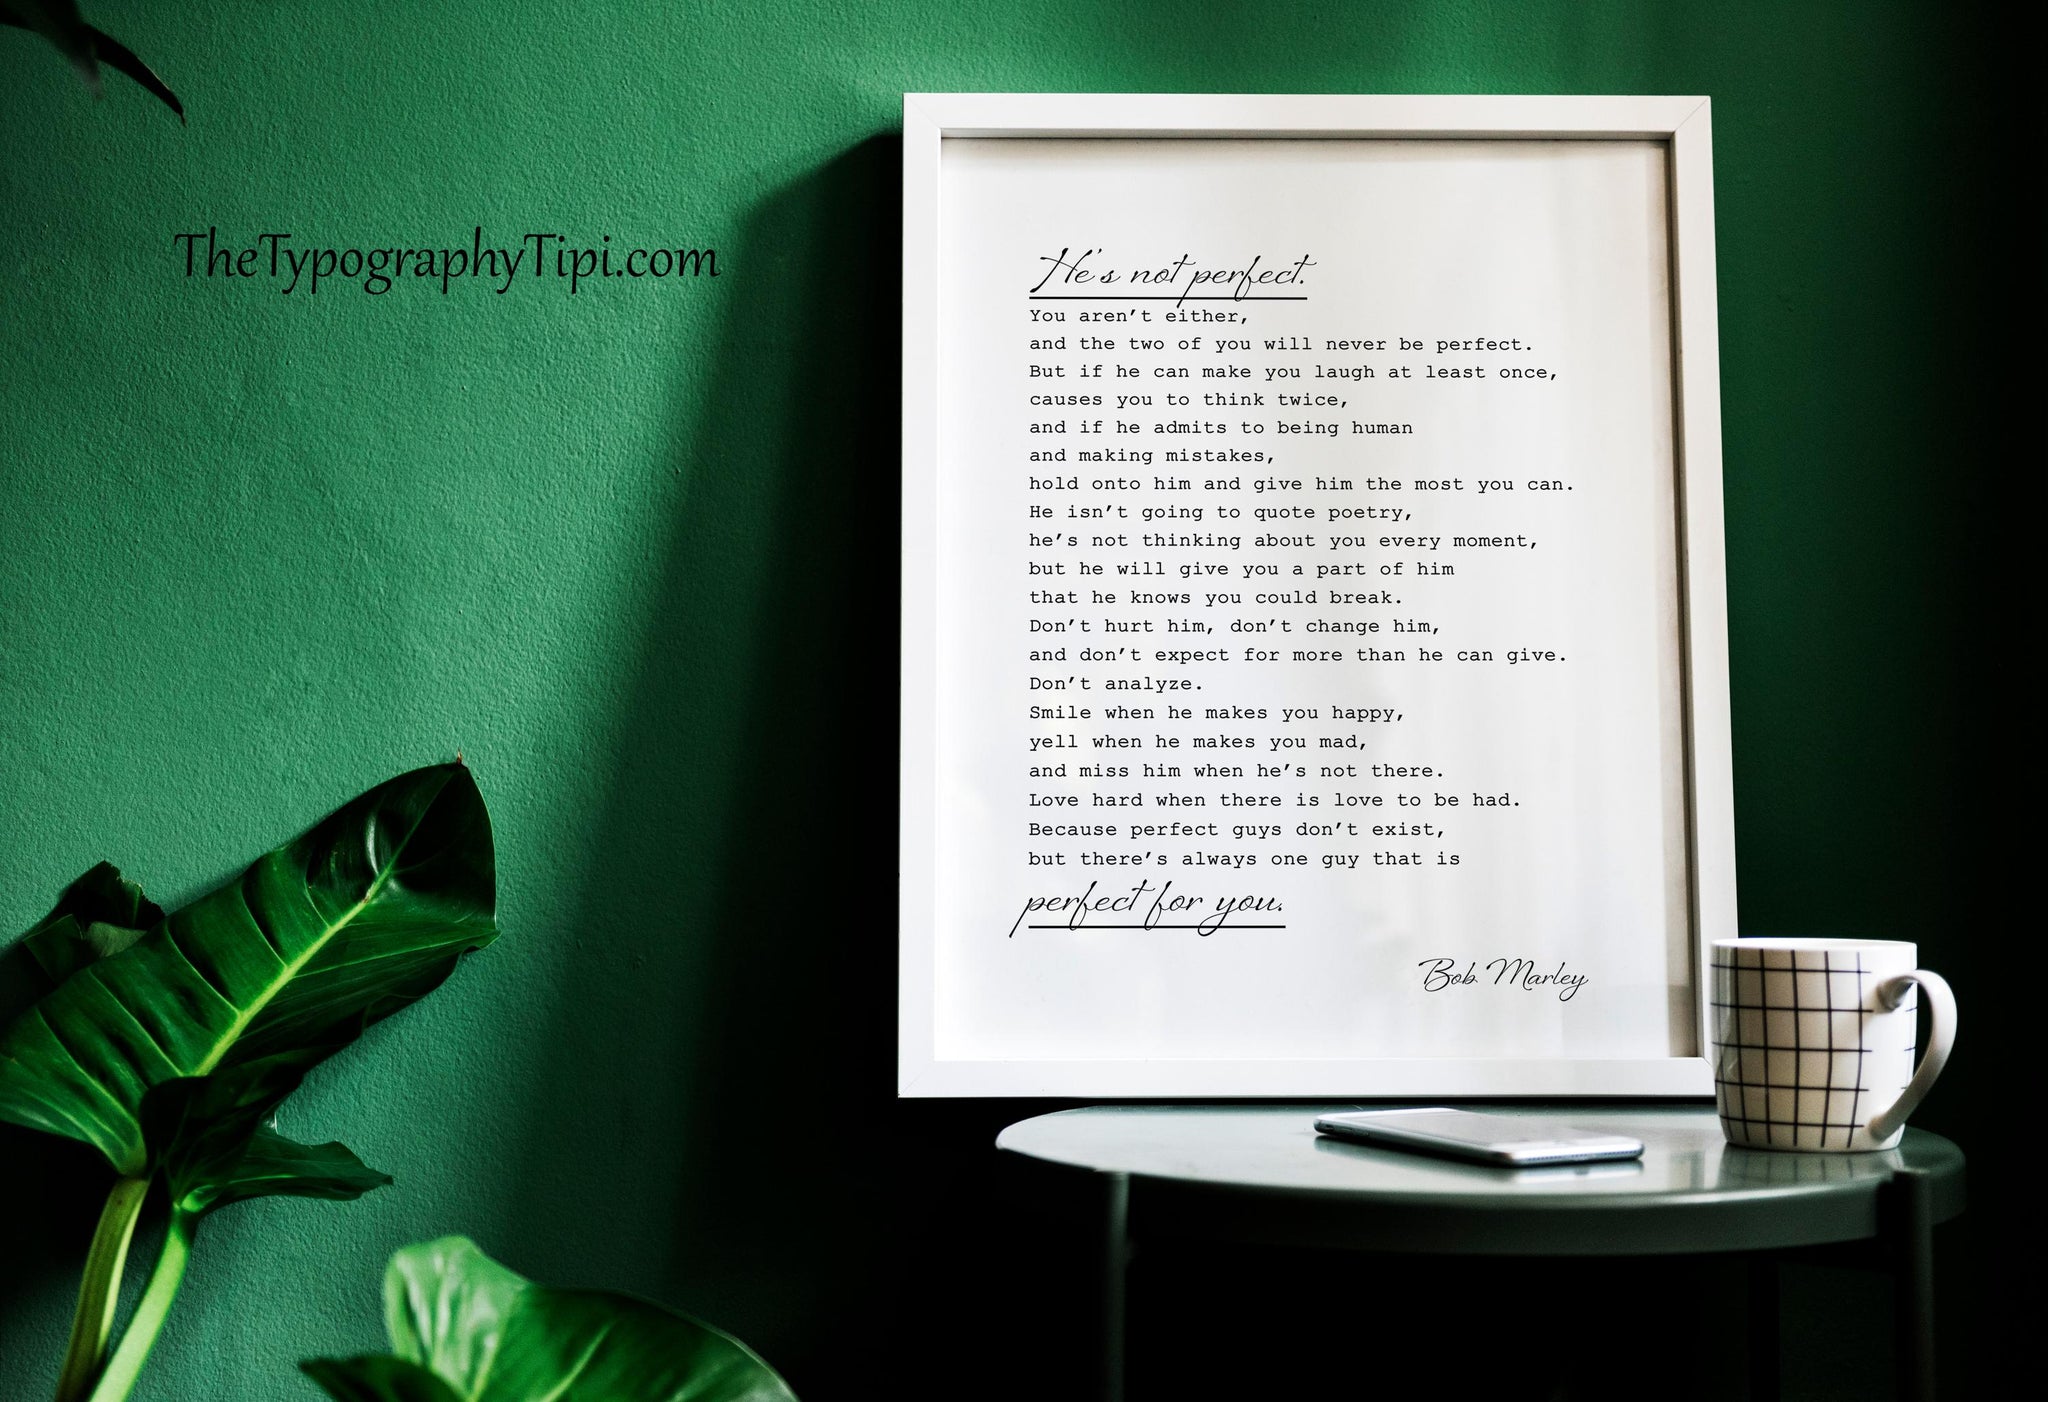 TheTypographyTipi.com
He's not perfect.
You aren't either,
and the two of you will never be perfect.
But if he can make you laugh at least once,
causes you to think twice,
and if he admits to being human
and making mistakes,
hold onto him and give him the most you can.
He isn't going to quote poetry,
he's not thinking about you every moment,
but he will give you a part of him
that he knows you could break.
Don't hurt him, don't change him,
and don't expect for more than he can give.
Don't analyze.
Smile when he makes you happy,
yell when he makes you mad,
and miss him when he's not there.
Love hard when there is love to be had.
Because perfect guys don't exist,
but there's always one guy that is
perfect for you.
Bob Marley